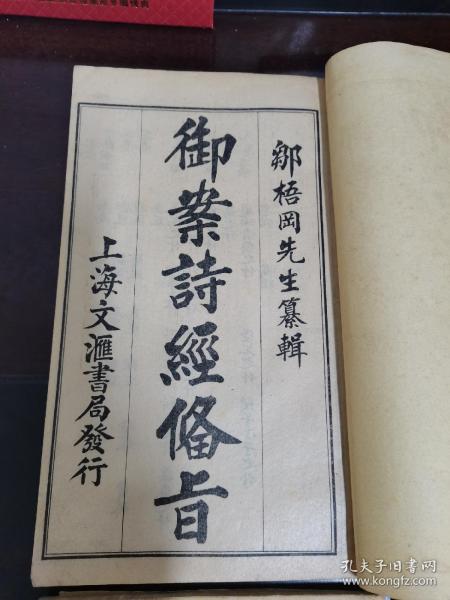 鄒梧岡先生纂輯
御案詩經備旨
上海文滙書局發行
孔夫子旧书网
www.kongfz.com